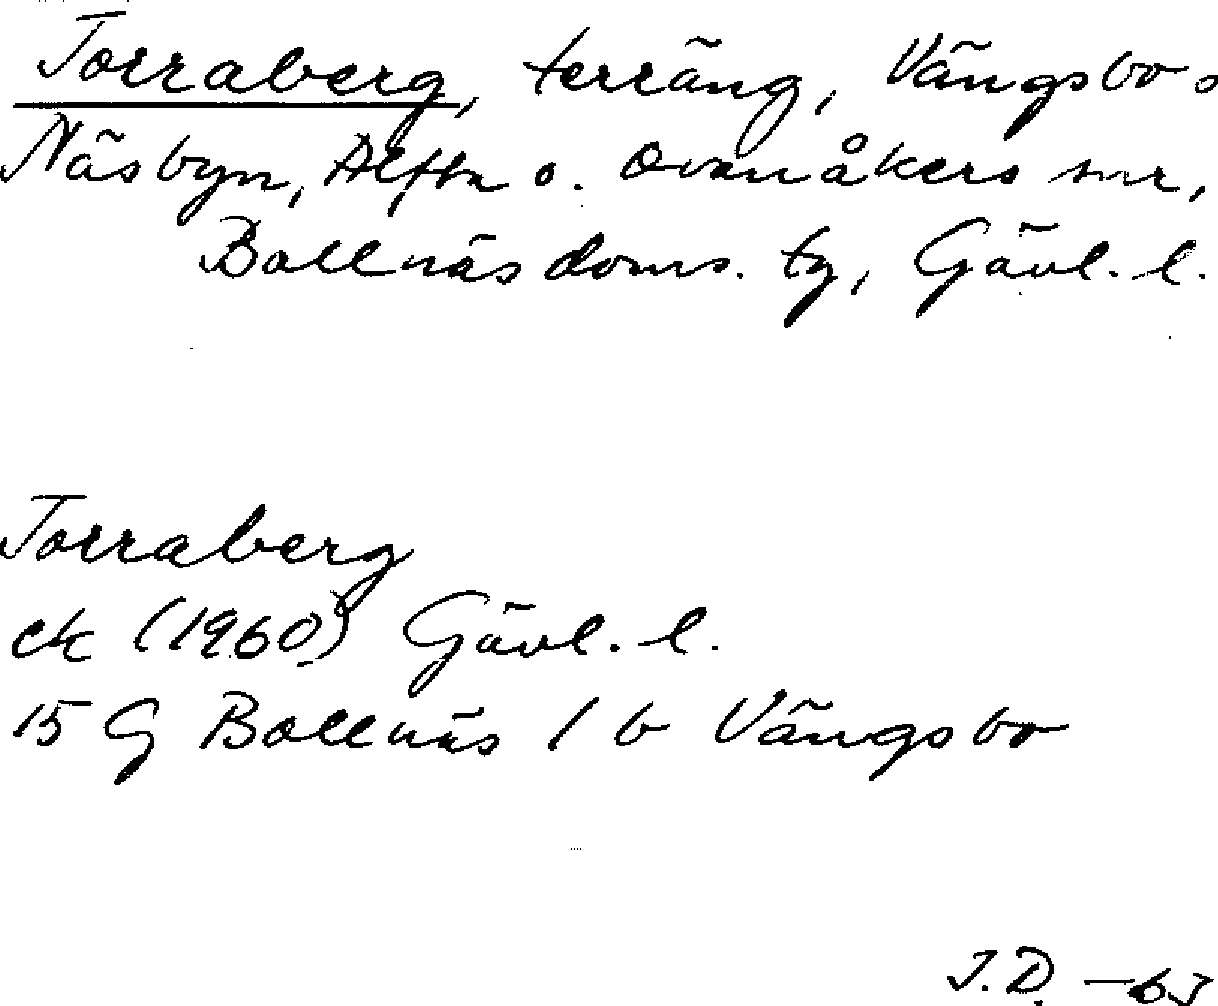 Torraberg, terräng, Vängsbo o
Näsbyn, Alfta o. Ovanåkers snr,
Bollnäs doms. tg, Gävl. l.
Torraberg
ek (1960) Gävl. l.
15 G Bollnäs 1 b Vängsbo
J.D. -63